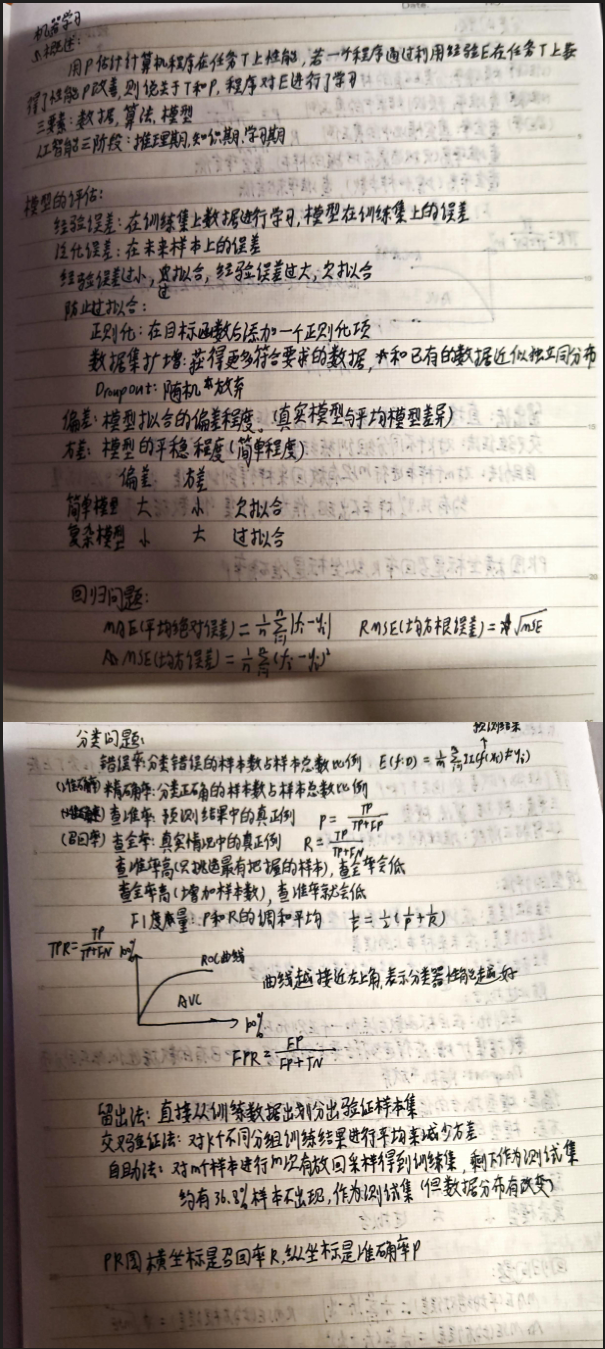 机器学习
概述:
用P估计计算机程序在任务T上性能,若一个程序通过利用经验E在任务T上获
得了性能P改善,则说关于T和P,程序对E进行了学习
三要素:数据,算法,模型
人工智能三阶段:推理期,知识期,学习期
模型的评估:
经验误差:在训练集上数据进行学习,模型在训练集上的误差
泛化误差:在未来样本上的误差
经验误差过小,过拟合,经验误差过大,欠拟合
防止过拟合:
正则化:在目标函数后添加一个正则化项
数据集扩增:获得更多符合要求的数据,和已有的数据近似独立同分布
Dropout:随机放弃
偏差:模型拟合的偏差程度。(真实模型与平均模型差异)
方差:模型的平稳程度(简单程度)
偏差 方差
简单模型 大 小 欠拟合
复杂模型 小 大 过拟合
回归问题:
MAE(平均绝对误差)=1/n Σ|fi-yi| RMSE(均方根误差)=√MSE
MSE(均方误差)=1/n Σ(fi-yi)²
分类问题:
预测结果
错误率:分类错误的样本数占样本总数比例 E(f:D)=1/n ΣI(f(xi)≠yi)
(准确率)精确率:分类正确的样本数占样本总数比例
查准率:预测结果中的真正例 P=TP/(TP+FP)
(召回率)查全率:真实情况中的真正例 R=TP/(TP+FN)
查准率高(只挑选最有把握的样本),查全率会低
查全率高(增加样本数),查准率就会低
F1度量:P和R的调和平均 1/F=1/2(1/P+1/R)
TPR=TP/(TP+FN) 100%
ROC曲线
AUC
曲线越接近左上角,表示分类器性能越好
100%
FPR=FP/(FP+TN)
留出法:直接从训练数据出划分出验证样本集
交叉验证法:对k个不同分组训练结果进行平均来减少方差
自助法:对m个样本进行m次有放回采样得到训练集,剩下作为测试集
约有36.8%样本不出现,作为测试集(但数据分布有改变)
PR图横坐标是召回率R,纵坐标是准确率P